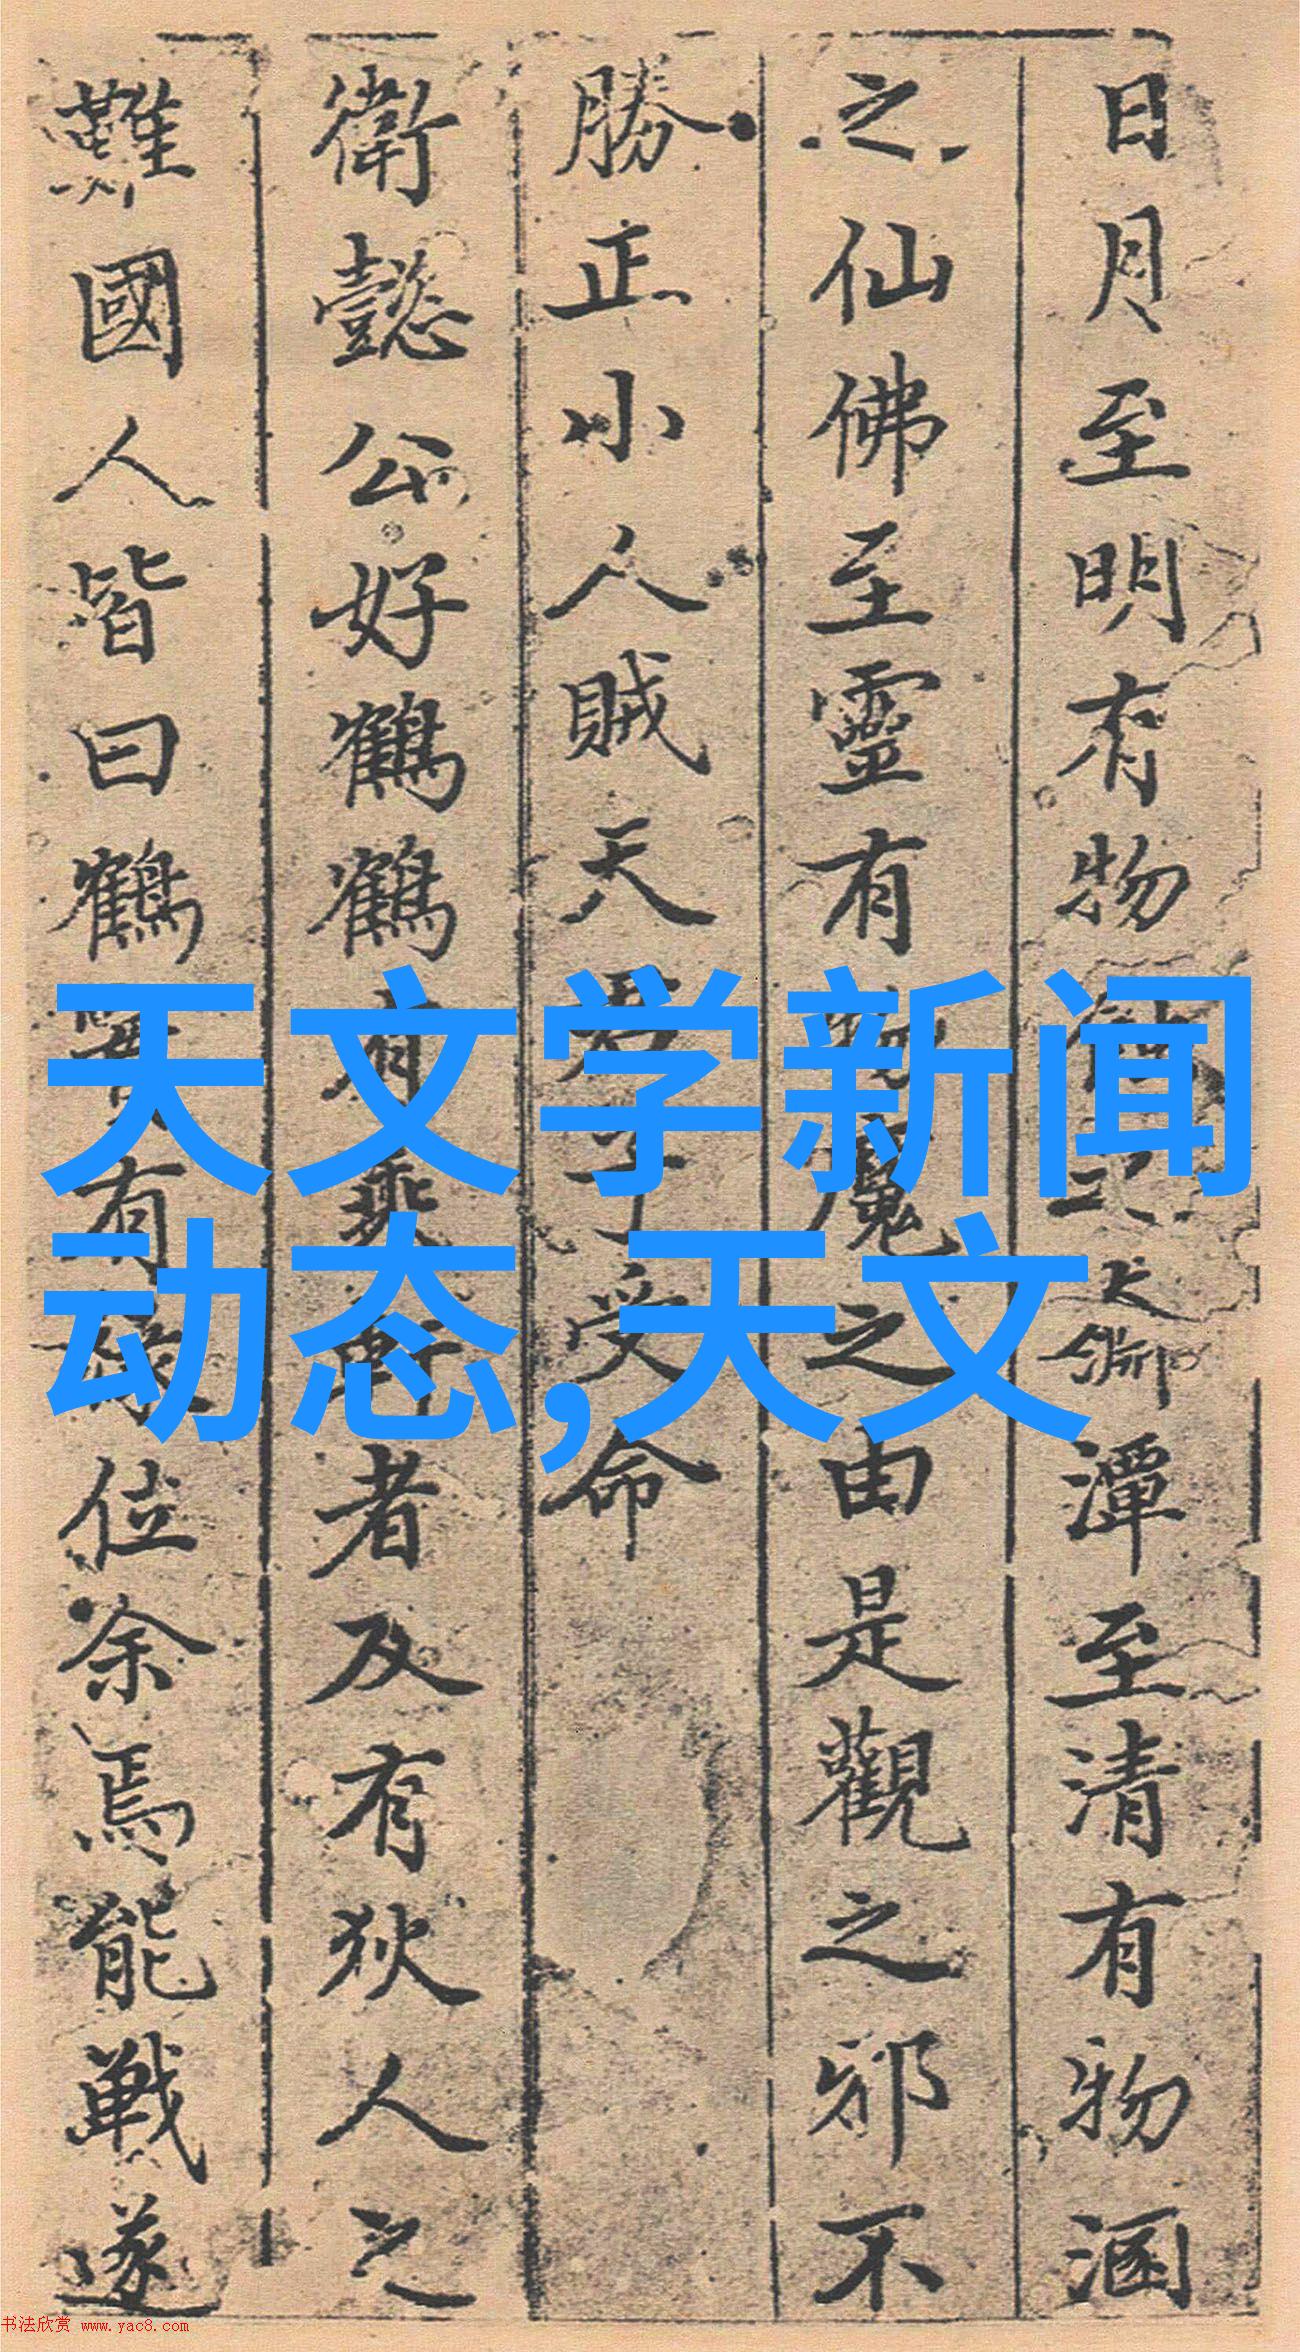 日月至明有物
潭至清有物涵
之仙佛至靈有
魔之由是觀之邪不
勝正小人賊天
受命
衛懿公好鶴鶴有乘軒者及有狄人之
難國人皆曰鶴
有祿位余焉能戰遂
天文学新闻
动态,天文
书法欣赏 www.yac8.com